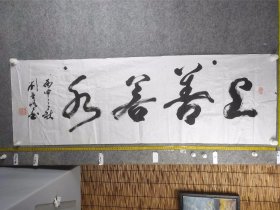 上善若水
丙申之秋